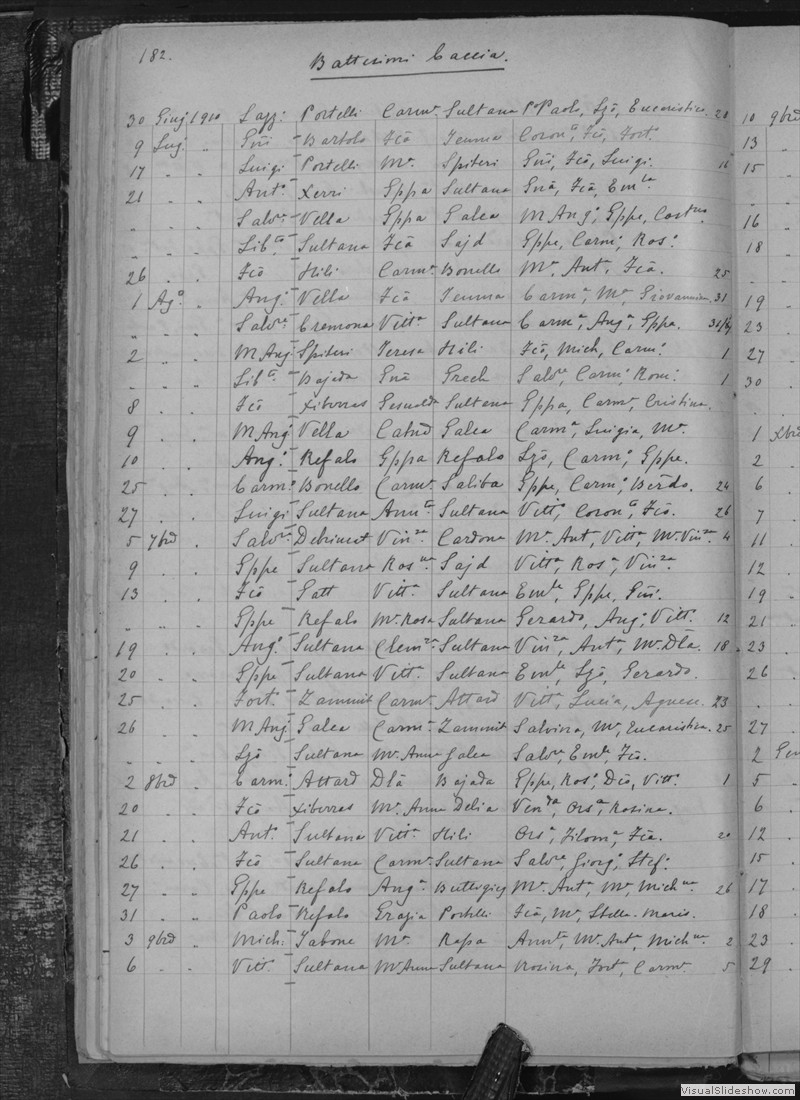 182.
Battesimi Caccia.
30 Giug 1910 Lazz: Portelli Carmª Sultana P. Paolo, Ljō, Eucaristica. 20 10 9bré
9 Lug. " Gñi Bartolo Fcā Tenma Coronᵗᵃ, Fcō, Fortº 13
17 . . Luigi Portelli Mª Spiteri Gñi, Fcō, Luigi. 16 15
21 . . Antº Xerri Gppa Sultana Gnā, Fcā, Emˡᵃ
. . . Salvʳᵉ Vella Gppa Galea M Angª, Gppe, .
. . . Libᵗᵒ Sultana Fcā Sajd Gppe, Carmº, Rosª 18
26 . . Fcō Hili Carmª Bonello Mª, Antª, Fcā. 25 .
1 Agº . Angº Vella Fcā Tenma Carmª, Mª, Giovannina. 31 19
. . . Salvʳᵉ Cremona Vittª Sultana Carmª, Angª, Gppa. 23
2 . . M Ang Spiteri Teresa Hili Fcō, Mich, Carmº 1 27
" . " Libᵗᵒ Bajada Gnā Grech Salvʳᵉ, Carmº, Rom: 1 30
8 . . Fcō Xiberras Gesualda Sultana Gppa, Carmª, Cristina. .
9 . . M Ang Vella Catnā Galea Carmª, Luigia, Mª. 1 Xbré
10 . . Angº Refalo Gppa Refalo Ljō, Carmº, Gppe. 2
25 . . Carmº Bonello Carmª Saliba Gppe, Carmº, Berdo. 24 6
27 . . Luigi Sultana Annᵗᵃ Sultana Vittº, Coronᵗᵒ, Fcō. 26 7
5 7bré . Salvʳᵉ Debrincat Vinᶻᵃ Cardona Mª Antª, Vittª, Mª Vinᶻᵃ 4 11
9 . . Gppe Sultana Rosⁿᵃ Sajd Vittª, Rosª, Vinᶻᵃ 12
13 . . Fcō Gatt Vittª Sultana Emˡᵉ, Gppe, Gñi. 19
. . . Gppe Refalo Mª Rosa Sultana Gerardo, Angº, Vittº. 12 21
19 . . Angº Sultana Clemᶻᵃ Sultana Vinᶻᵃ, Antª, Mª Dla. 18 23
20 . . Gppe Sultana Vittª Sultana Emˡᵉ, Ljō, Gerardo. 26
25 . . Fortº Zammit Carmª Attard Vittª, Lucia, Agnese. 23 .
26 . . M Ang Galea Carmª Zammit Salvina, Mª, Eucaristica. 25 27
. . . Ljō Sultana Mª Anna Galea Salvʳᵉ, Emˡᵉ, Fcō. 2
2 8bré . Carmº Attard Dlā Bajada Gppe, Rosº, Dcō, Vittº. 1 5
20 . . Fcō Xiberras Mª Anna Delia Vinᶻᵃ, Orsª, Rosina. 6
21 . . Antº Sultana Vittª Hili Orsª, Filomª, Fcā. 20 12
26 . . Fcō Sultana Carmª Sultana Salvʳᵉ, Giorgº, Stefº 15
27 . " Gppe Refalo Angª Buttigieg Mª Antª, Mª, Michⁿᵃ 26 17
31 . " Paolo Refalo Grazia Portelli Fcā, Mª, Stella Maris. 18
3 9bré " Mich: Tabone Mª Rapa Annᵗᵃ, Mª Antª, Michⁿᵃ. 2 23
6 . . Vittº Sultana Mª Anna Sultana Rosina, Fortª, Carmª 5 29
VisualSlideshow.com